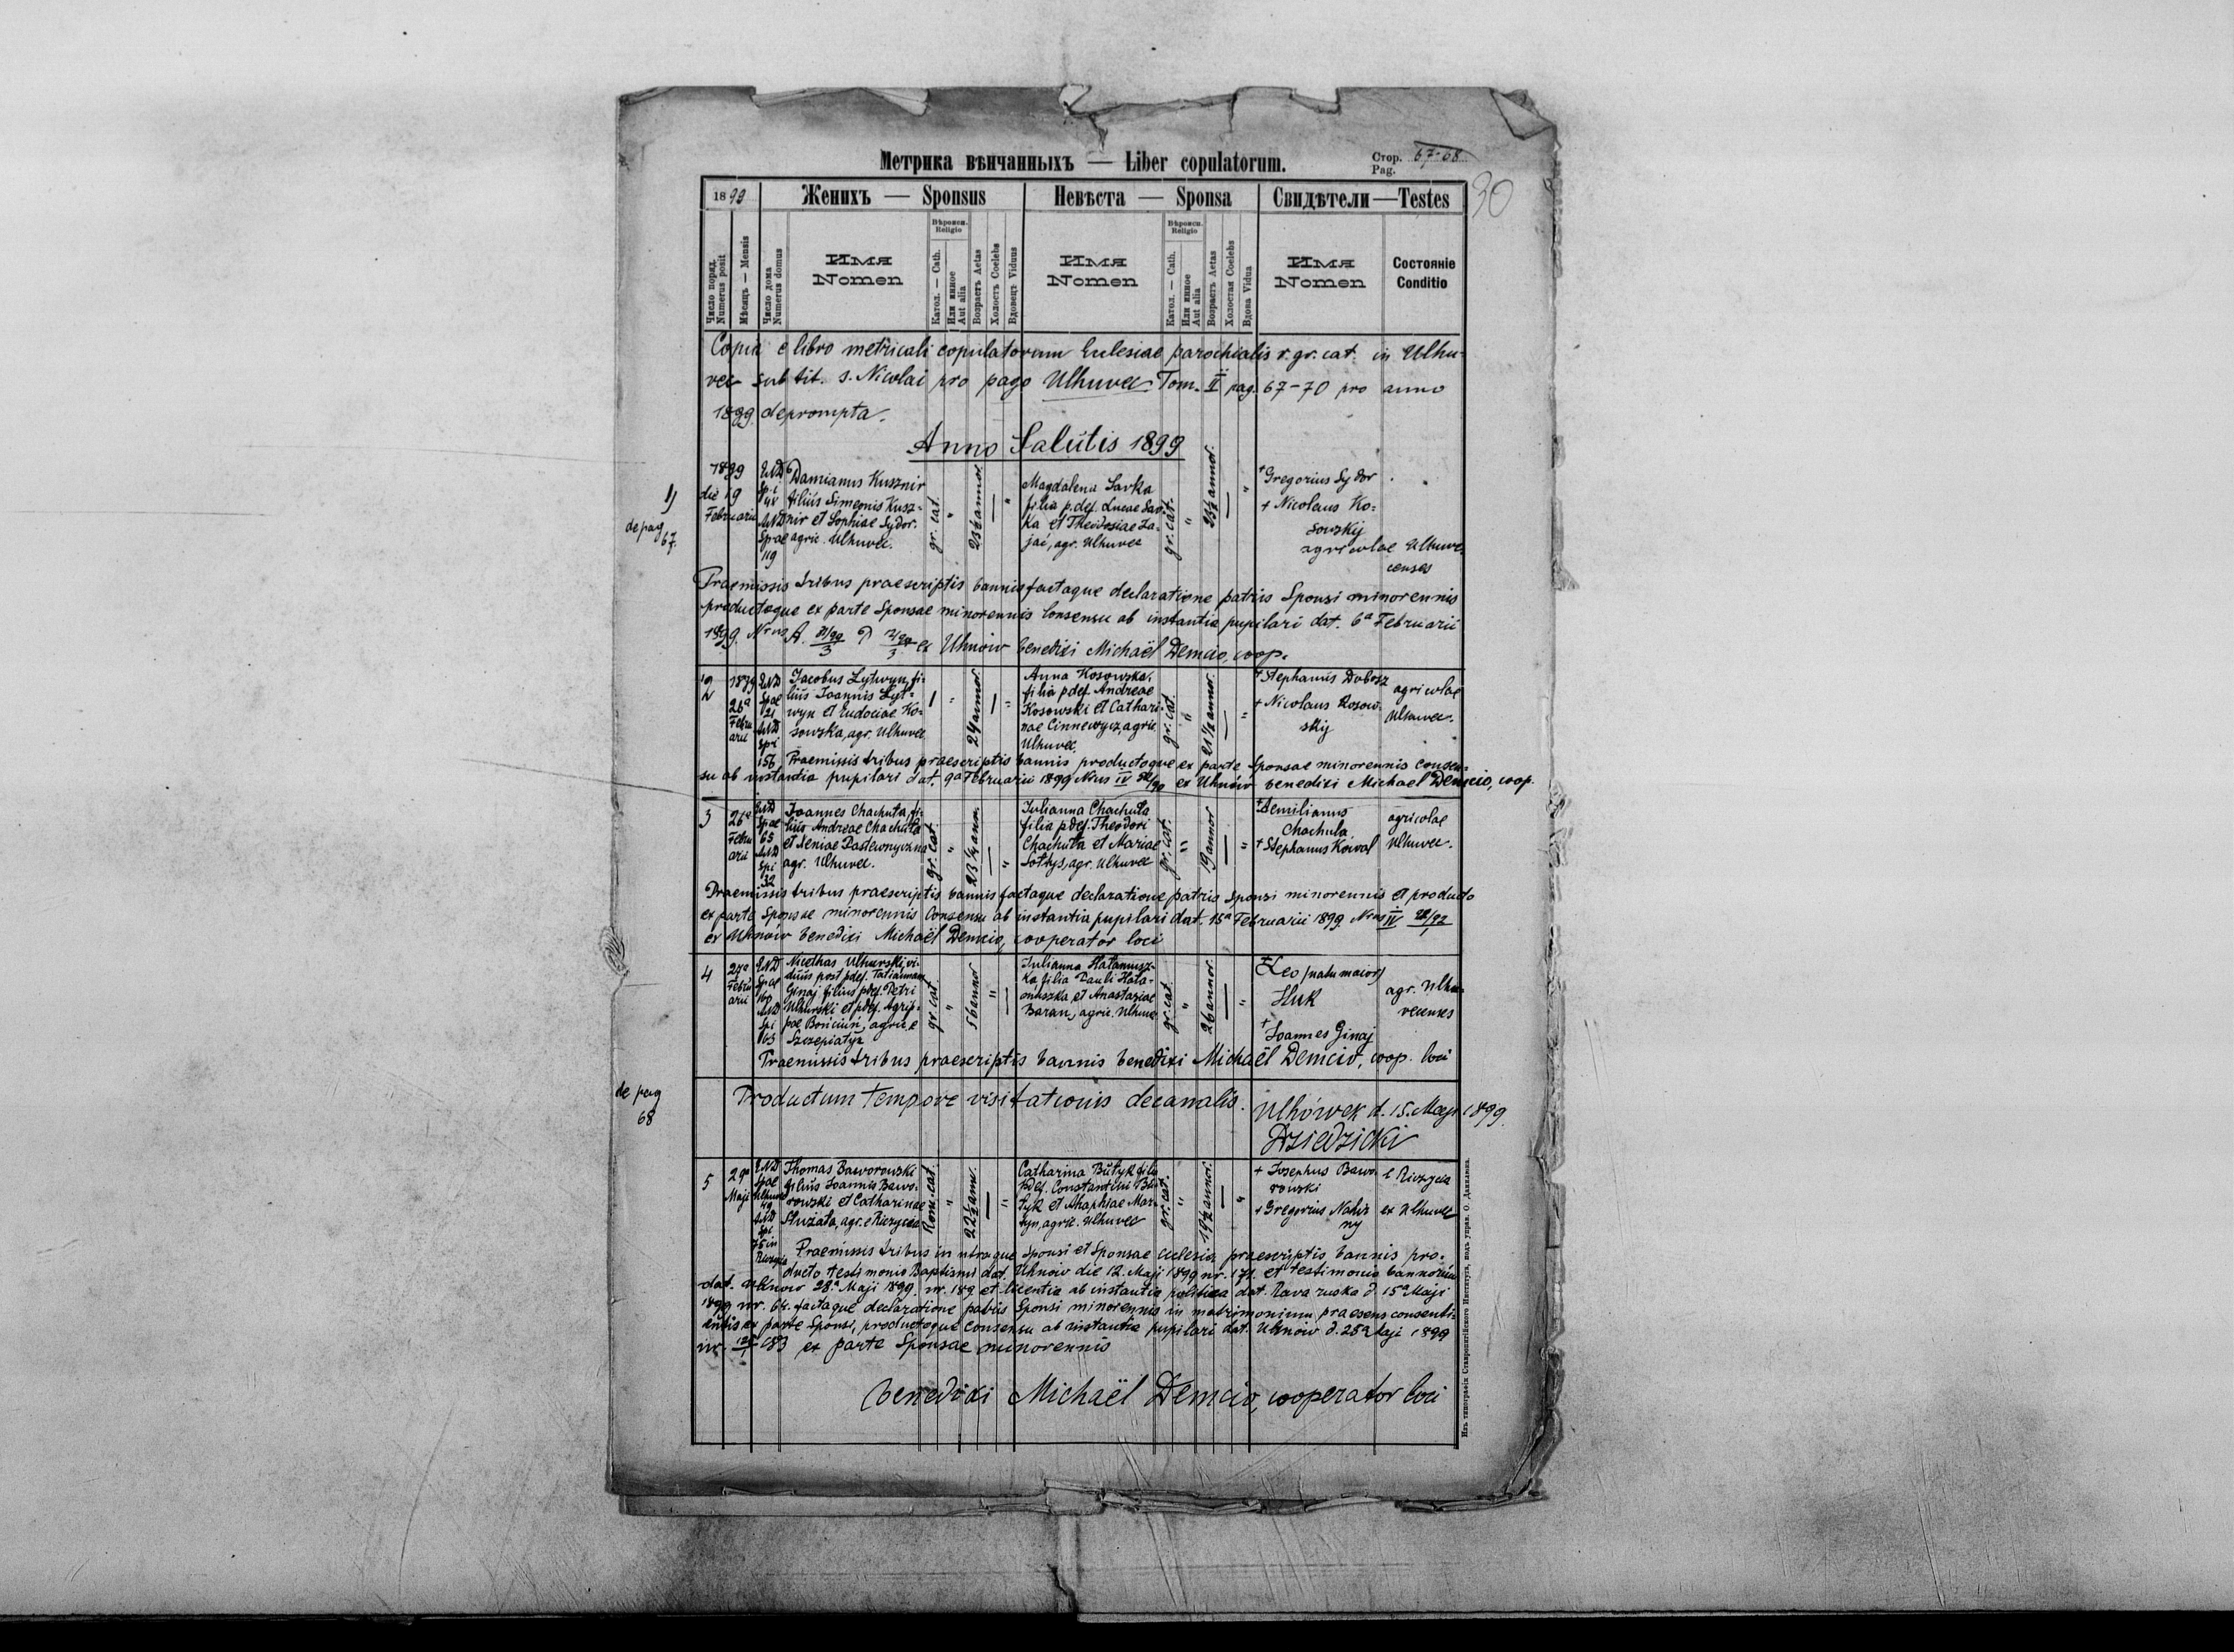 Метрика вѣнчанныхъ — Liber copulatorum.
Стор. 67-68
Pag.
30
1899
Женихъ — Sponsus
Невѣста — Sponsa
Свидѣтели — Testes
Число поряд.
Numerus posit
Мѣсяцъ — Mensis
Число дома
Numerus domus
Имя
Nomen
Вѣроисп.
Religio
Катол. — Cath.
Или инное
Aut alia
Возрастъ Aetas
Холостъ Coelebs
Вдовецъ Viduus
Имя
Nomen
Вѣроисп.
Religio
Катол. — Cath.
Или инное
Aut alia
Возрастъ Aetas
Холостая Coelebs
Вдова Vidua
Имя
Nomen
Состояніе
Conditio
Copia e libro metricali copulatorum Eclesiae parochialis r. gr. cat. in Ulhu-
vek sub tit. s. Nicolai pro pago Ulhuvek Tom. II pag. 67-70 pro anno
1899 deprompta.
Anno Salutis 1899
1)
de pag
67.
1899
die 19
Februarii
119
Damianus Kusznir
filius Simeonis Kusz-
nir et Sophiae Sydor.
agric. Ulhuvec.
gr. cat.
"
23½ annor.
—
"
Magdalena Savka
filia p.def. Lucae Sav-
ka et Theodosiae Za-
jać, agr. Ulhuvec
gr. cat.
"
23½ annor.
—
"
+ Gregorius Sydor
+ Nicolaus Ko-
sowskij
agricolae Ulhuve-
censes
Praemissis tribus praescriptis bannis factaque declaratione patris Sponsi minorennis
productoque ex parte Sponsae minorennis Consensu ab instantia pupilari dat. 6ª Februarii
1899. Nrus A. ex Uhnów benedixi Michaël Demcio, coop.
2
1899
26ª
Febru
arii
156
Jacobus Lytwyn, fi-
lius Joannis Lyt-
wyn et Eudociae Ko-
sowska, agr. Ulhuvec.
24 annor.
Anna Kosowska,
filia pdef. Andreae
Kosowski et Cathari-
nae Cinnewycz, agric.
Ulhuvec.
gr. cat.
"
21½ annor.
—
+ Stephanus Dubosz
+ Nicolaus Kosow-
skij
agricolae
Ulhuvec.
Praemissis tribus praescriptis bannis productoque ex parte Sponsae minorennis consen-
su ab instantia pupilari dat. 9ª Februarii 1899 Nrus IV ex Uhnów benedixi Michael Demcio, coop.
3
26ª
Febru
arii
32
Joannes Chachuta, fi-
lius Andreae Chachuta
et Xeniae Pastewnyczna
agr. Ulhuvec.
gr. cat.
"
23½ annor.
—
"
Iulianna Chachuta
filia pdef. Theodori
Chachuta et Mariae
Sołtys, agr. Ulhuvec
gr. cat.
"
19 annor
—
"
+ Aemilianus
Chachula
+ Stephanus Kowal
agricolae
Ulhuvec.
Praemissis tribus praescriptis bannis factaque declaratione patris Sponsi minorennis et producto
ex parte Sponsae minorennis Consensu ab instantia pupilari dat. 15ª Februarii 1899. Nrus IV
ex Uhnów benedixi Michaël Demcio, cooperator loci
4
27ª
Febru
arii
Nicethas Ulhurski vi-
duus post pdef. Tatiannam
Ginaj filius pdef. Petri
Ulhurski et pdef. Agrip-
pae Boriciuń, agric. e
Szczepiatyn
gr. cat.
"
56 annor
"
—
Iulianna Hałamusz-
ka filia Pauli Hała-
muszka et Anastasiae
Baran, agric. Ulhuvec
gr. cat.
"
26 annor.
—
"
+ Leo /natu maior/
Huk
+ Joannes Ginaj
agr. Ulhu-
vecenses
Praemissis tribus praescriptis bannis benedixi Michaël Demcio, coop. loci
de pag
68
Productum tempore visitationis decanalis.
Ulhówek d. 15. Maji 1899.
Dziedzicki
5
29ª
Maji
Thomas Baworowski
filius Joannis Bawo-
rowski et Catharinae
Służała, agr. e Rieczyca
Rom. cat.
"
22½ ann.
—
"
Catharina Butyk filia
pdef. Constantini Bu-
tyk et Ahaphiae Mar-
tyn, agric. Ulhuvec
gr. cat.
"
19½ annor.
—
"
+ Josephus Bawo-
rowski
+ Gregorius Nahir-
ny
e Riczyca
ex Ulhuvec
Praemissis tribus in utraque Sponsi et Sponsae ecclesia praescriptis bannis pro-
ducto testimonio Baptismi dat. Uhnów die 12. Maji 1899 nr. 171. et testimonio bannorum
dat. Uhnow 28ª Maji 1899. nr. 189 et licentia ab instantia politica dat. Rava ruska d. 15ª Maji
1899 nr. 68. factaque declaratione patris Sponsi minorennis in matrimonium praesens consenti-
entis ex parte Sponsi, productoque consensu ab instantia pupilari dat. Uhnów d. 25 Maji 1899
nr. ex parte Sponsae minorennis
benedixi Michaël Demcio, cooperator loci
Изъ типографіи Ставропигійского Института, подъ управ. О. Данилюка.